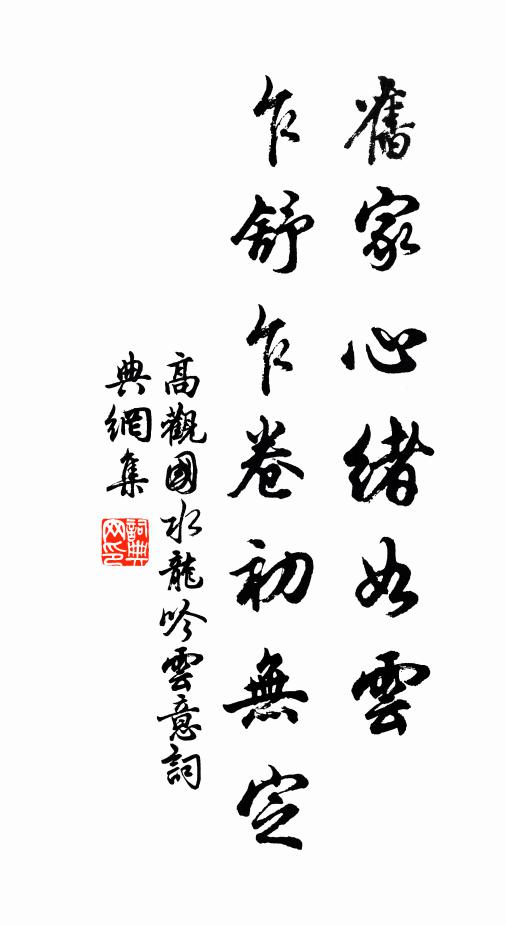 舊家心緒如雲
乍舒乍卷初無定
高觀國水龍吟雲意詞
典網集
詞典網印